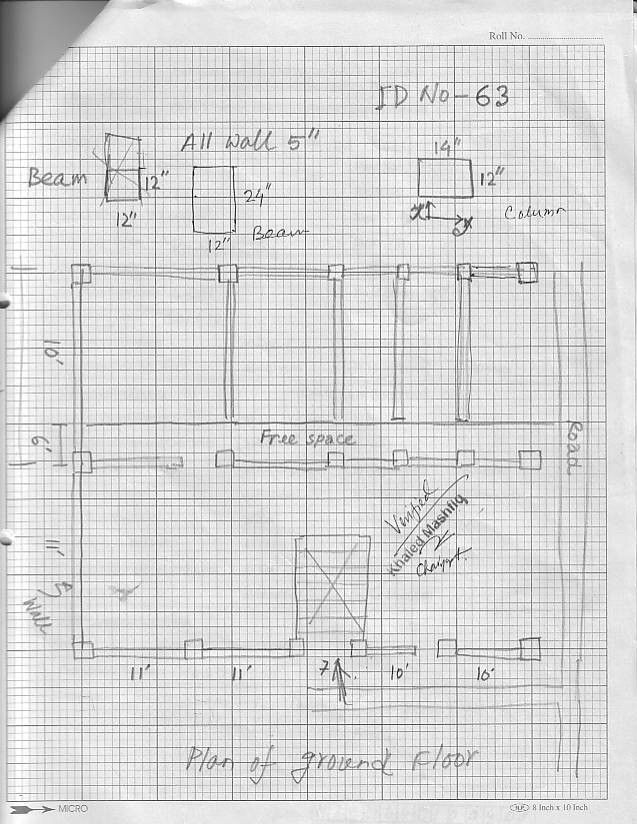 Roll No.
ID No-63
All Wall 5"
14"
Beam
12"
24"
12"
12"
12"
Beam
x
y
Column
10'
6'
Free space
Road
Verified
Khaled Mashfiq
11'
5
Wall
11'
11'
7
10'
10'
Plan of ground Floor
MICRO
8 Inch x 10 Inch